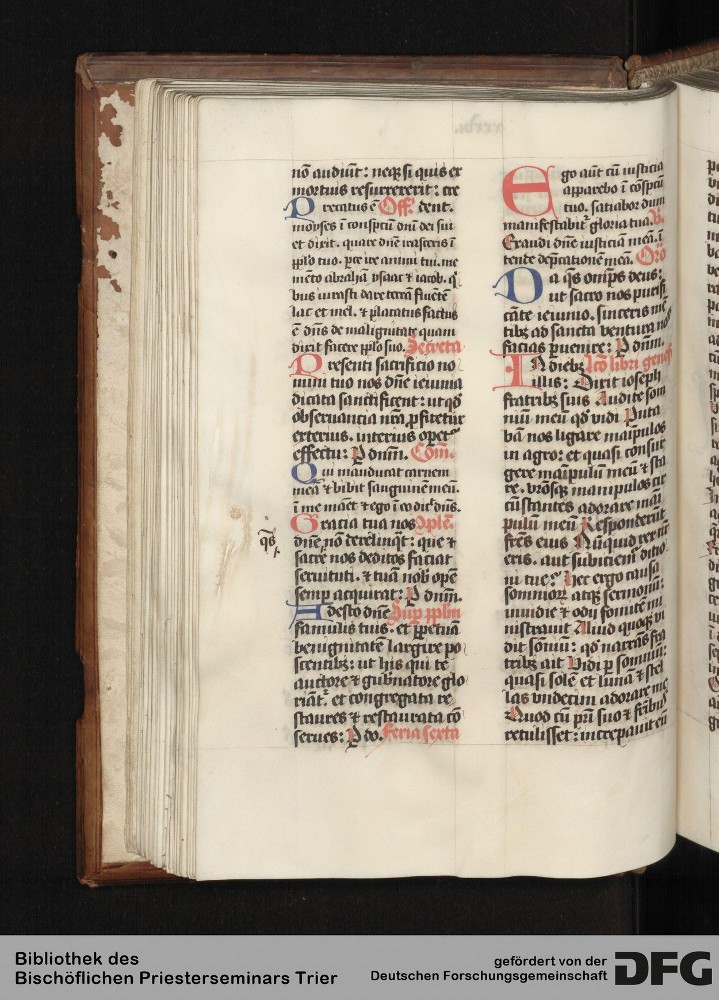 nō audiūt: neqꝫ si quis ex
mortuis resurrexerit: cre
Precatus ē Off. dent.
moyses ī conspectu dnī dei sui
et dixit. quare dnē irasceris ī
ppl̄o tuo. parce ire animi tui. me
mēto abrahā ysaac ⁊ iacob. q̄
bus iurasti dare terrā fluētē
lac et mel. ⁊ placatus factus
ē dn̄s de malignitate quam
dixit facere ppl̄o suo. Secreta
Presenti sacrificio no
mini tuo nos dnē ieiunia
dicata sanctificent: ut qd̄
obseruantia nrā profitetur
exterius. interius operet᷑
effectu: P dnm̄. Com̄.
Qui manducat carnem
meā ⁊ bibit sanguinē meū.
ī me manet ⁊ ego ī eo dic̄ dn̄s.
Gracia tua nos 9ple.
qs̄
dnē nō derelinqt: que ⁊
sacre nos deditos faciat
seruituti. ⁊ tuā nob̄ opē
semp̄ acquirat: P dnm̄.
Adesto dnē Sup ppl̄m
famulis tuis. et ppetuā
benignitatē largire po
scentibꝫ: ut hijs qui te
auctore ⁊ gub̄natore glo
riāt᷑. et congregata re
staures ⁊ restaurata cō
serues: P do. Feria sexta
Ego aūt cū iusticia
apparebo ī cōspcū
tuo. satiabor dum
manifestabit᷑ gloria tua. V.
Exaudi dnē iusticiā meā. ī
tente dep̄cationē meā. Orō
Da qs̄ omp̄s deus:
ut sacro nos purifi
cāte ieiunio. sinceris mē
tibꝫ ad sancta ventura nos
facias puenire: P dnm̄.
In diebꝫ Lcō libri genes
illis: Dixit ioseph
fratribꝫ suis Audite som
niū meū qd̄ vidi Puta
bā nos ligare manipulos
in agro: et quasi consur
gere manipulū meū ⁊ sta
re. vrōsqꝫ manipulos cir
cūstantes adorare mani
pulū meū Responderūt
frēs eius Nūquid rex nr̄
eris. aut subiciem᷑ ditio
ni tue? Hec ergo causa
somniorū atqꝫ sermonū:
inuidie ⁊ odij fomitē mi
nistrauit Aliud quoqꝫ vi
dit sōniū: qd̄ narrās fra
tribꝫ ait Vidi p somniū:
quasi solē et lunā ⁊ stel
las vndecim adorare me
Quod cū p̄ri suo ⁊ frībꝫ
retulisset: increpauit eū
Bibliothek des
Bischöflichen Priesterseminars Trier
gefördert von der
Deutschen Forschungsgemeinschaft
DFG